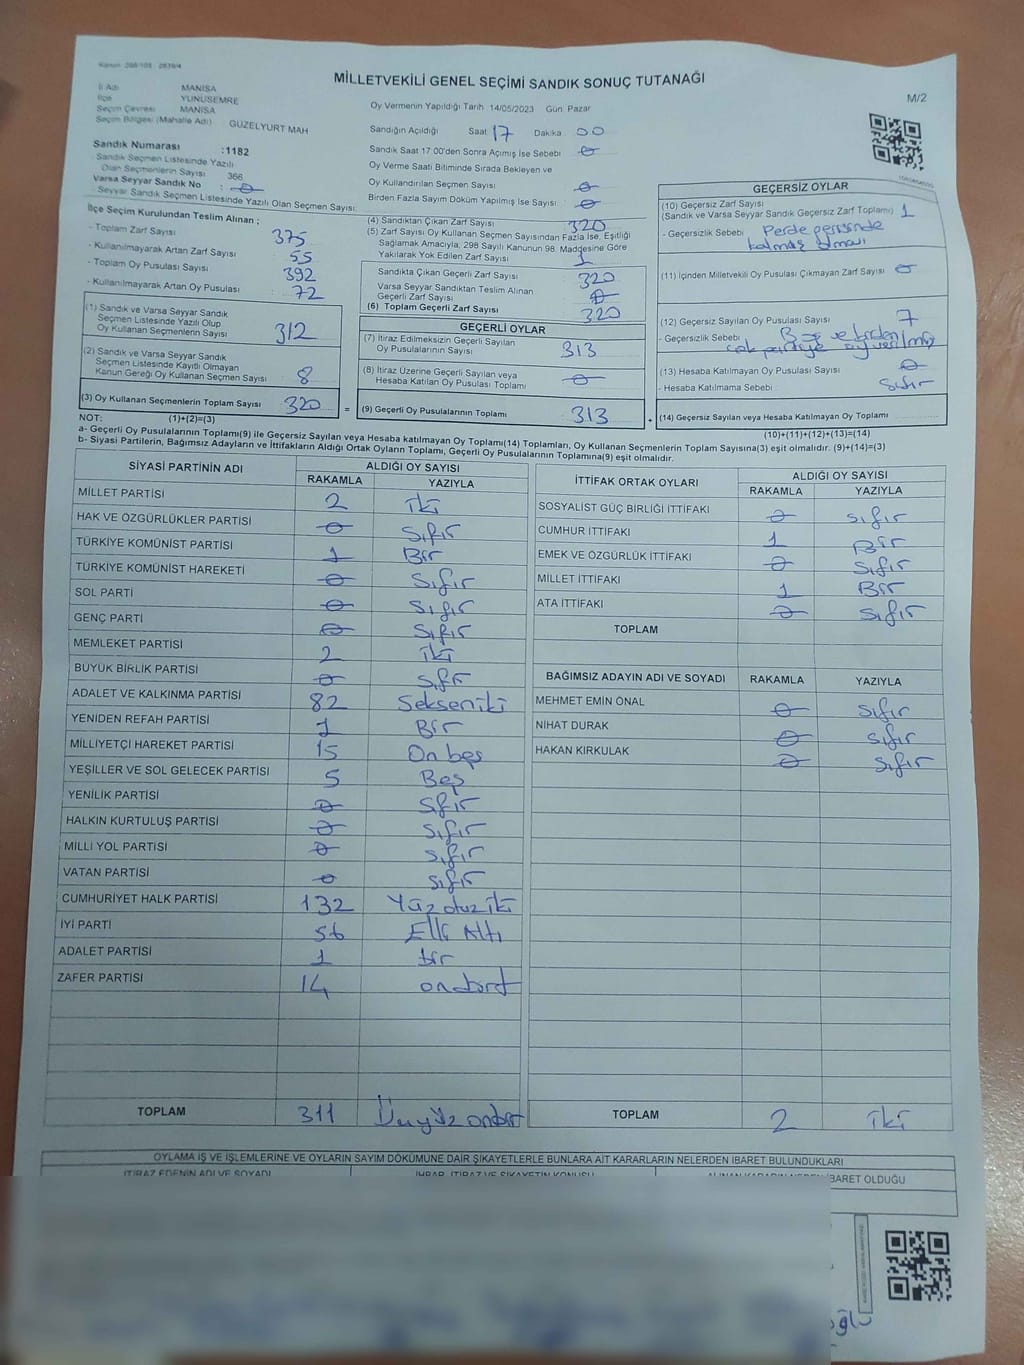 MİLLETVEKİLİ GENEL SEÇİMİ SANDIK SONUÇ TUTANAĞI
M/2
İl Adı MANİSA
İlçe YUNUSEMRE
Seçim Çevresi MANİSA
Seçim Bölgesi (Mahalle Adı) GÜZELYURT MAH
Sandık Numarası :1182
Sandık Seçmen Listesinde Yazılı
Olan Seçmenlerin Sayısı 366
Varsa Seyyar Sandık No : 0
Seyyar Sandık Seçmen Listesinde Yazılı Olan Seçmen Sayısı:
İlçe Seçim Kurulundan Teslim Alınan ;
- Toplam Zarf Sayısı : 375
- Kullanılmayarak Artan Zarf Sayısı : 55
- Toplam Oy Pusulası Sayısı : 392
- Kullanılmayarak Artan Oy Pusulası : 72
(1) Sandık ve Varsa Seyyar Sandık
Seçmen Listesinde Yazılı Olup
Oy Kullanan Seçmenlerin Sayısı 312
(2) Sandık ve Varsa Seyyar Sandık
Seçmen Listesinde Kayıtlı Olmayan
Kanun Gereği Oy Kullanan Seçmen Sayısı 8
(3) Oy Kullanan Seçmenlerin Toplam Sayısı 320
(1)+(2)=(3)
Oy Vermenin Yapıldığı Tarih 14/05/2023 Gün Pazar
Sandığın Açıldığı Saat 17 Dakika 00
Sandık Saat 17:00'den Sonra Açılmış İse Sebebi : 0
Oy Verme Saati Bitiminde Sırada Bekleyen ve
Oy Kullandırılan Seçmen Sayısı : 0
Birden Fazla Sayım Döküm Yapılmış İse Sayısı : 0
(4) Sandıktan Çıkan Zarf Sayısı : 320
(5) Zarf Sayısı Oy Kullanan Seçmen Sayısından Fazla İse, Eşitliği
Sağlamak Amacıyla, 298 Sayılı Kanunun 98. Maddesine Göre
Yakılarak Yok Edilen Zarf Sayısı : 1
Sandıkta Çıkan Geçerli Zarf Sayısı : 320
Varsa Seyyar Sandıktan Teslim Alınan
Geçerli Zarf Sayısı : 0
(6) Toplam Geçerli Zarf Sayısı : 320
GEÇERLİ OYLAR
(7) İtiraz Edilmeksizin Geçerli Sayılan
Oy Pusulalarının Sayısı : 313
(8) İtiraz Üzerine Geçerli Sayılan veya
Hesaba Katılan Oy Pusulası Toplamı : 0
= (9) Geçerli Oy Pusulalarının Toplamı : 313
GEÇERSİZ OYLAR
(10) Geçersiz Zarf Sayısı
(Sandık ve Varsa Seyyar Sandık Geçersiz Zarf Toplamı) : 1
- Geçersizlik Sebebi : Perde
(11) İçinden Milletvekili Oy Pusulası Çıkmayan Zarf Sayısı : 0
(12) Geçersiz Sayılan Oy Pusulası Sayısı : 7
- Geçersizlik Sebebi : Boş ve birden
çok partiye
(13) Hesaba Katılmayan Oy Pusulası Sayısı : 0
- Hesaba Katılmama Sebebi : sıfır
+ (14) Geçersiz Sayılan veya Hesaba Katılmayan Oy Toplamı
(10)+(11)+(12)+(13)=(14)
NOT:
a- Geçerli Oy Pusulalarının Toplamı(9) ile Geçersiz Sayılan veya Hesaba katılmayan Oy Toplamı(14) Toplamları, Oy Kullanan Seçmenlerin Toplam Sayısına(3) eşit olmalıdır. (9)+(14)=(3)
b- Siyasi Partilerin, Bağımsız Adayların ve İttifakların Aldığı Ortak Oyların Toplamı, Geçerli Oy Pusulalarının Toplamına(9) eşit olmalıdır.
SİYASİ PARTİNİN ADI ALDIĞI OY SAYISI
RAKAMLA YAZIYLA
MİLLET PARTİSİ 2 iki
HAK VE ÖZGÜRLÜKLER PARTİSİ 0 Sıfır
TÜRKİYE KOMÜNİST PARTİSİ 1 Bir
TÜRKİYE KOMÜNİST HAREKETİ 0 Sıfır
SOL PARTİ 0 Sıfır
GENÇ PARTİ 0 Sıfır
MEMLEKET PARTİSİ 2 iki
BÜYÜK BİRLİK PARTİSİ 0 Sıfır
ADALET VE KALKINMA PARTİSİ 82 Sekseniki
YENİDEN REFAH PARTİSİ 1 Bir
MİLLİYETÇİ HAREKET PARTİSİ 15 Onbeş
YEŞİLLER VE SOL GELECEK PARTİSİ 5 Beş
YENİLİK PARTİSİ 0 Sıfır
HALKIN KURTULUŞ PARTİSİ 0 Sıfır
MİLLİ YOL PARTİSİ 0 sıfır
VATAN PARTİSİ 0 sıfır
CUMHURİYET HALK PARTİSİ 132 Yüzotuziki
İYİ PARTİ 56 Elli Altı
ADALET PARTİSİ 1 bir
ZAFER PARTİSİ 14 ondört
TOPLAM 311 Üçyüzonbir
İTTİFAK ORTAK OYLARI ALDIĞI OY SAYISI
RAKAMLA YAZIYLA
SOSYALİST GÜÇ BİRLİĞİ İTTİFAKI 0 sıfır
CUMHUR İTTİFAKI 1 Bir
EMEK VE ÖZGÜRLÜK İTTİFAKI 0 Sıfır
MİLLET İTTİFAKI 1 Bir
ATA İTTİFAKI 0 sıfır
TOPLAM
BAĞIMSIZ ADAYIN ADI VE SOYADI RAKAMLA YAZIYLA
MEHMET EMİN ÖNAL 0 sıfır
NİHAT DURAK 0 sıfır
HAKAN KIRKULAK 0 sıfır
TOPLAM 2 iki
OYLAMA İŞ VE İŞLEMLERİNE VE OYLARIN SAYIM DÖKÜMÜNE DAİR ŞİKAYETLERLE BUNLARA AİT KARARLARIN NELERDEN İBARET BULUNDUKLARI
İTİRAZ EDENİN ADI VE SOYADI İHBAR, İTİRAZ VE ŞİKAYETİN KONUSU ALINAN KARARIN NEDEN İBARET OLDUĞU
oğlu